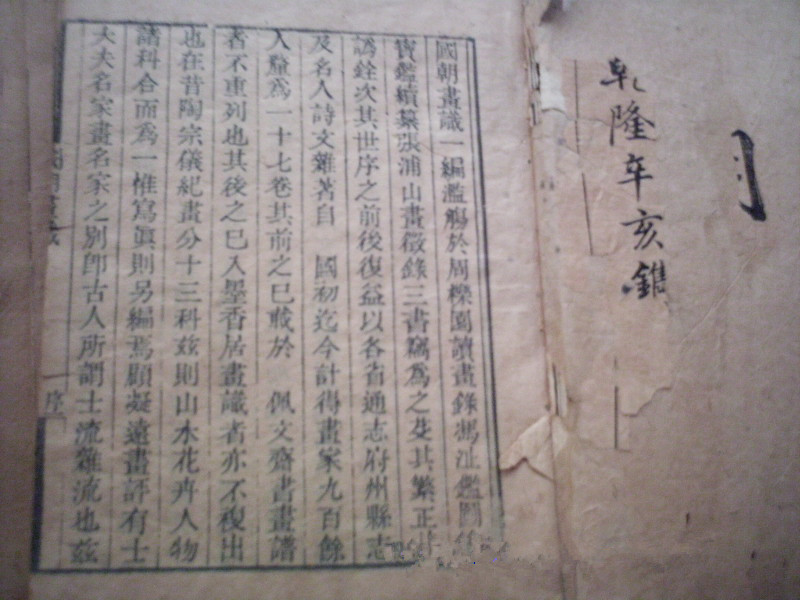 乾隆辛亥鐫
國朝畫識一編濫觴於周櫟園讀畫錄馮沚鑑圖
寶鑑續纂張浦山畫徵錄三書竊爲之芟其繁正
譌銓次其世序之前後復益以各省通志府州縣志
及名人詩文雜著自 國初迄今計得畫家九百餘
人釐爲一十七卷其前之已載於 佩文齋書畫譜
者不重列也其後之已入墨香居畫識者亦不複出
也在昔陶宗儀紀畫分十三科茲則山水花卉人物
諸科合而爲一惟寫眞則另編焉顧凝遠畫評有士
大夫名家畫名家之別卽古人所謂士流雜流也茲
序